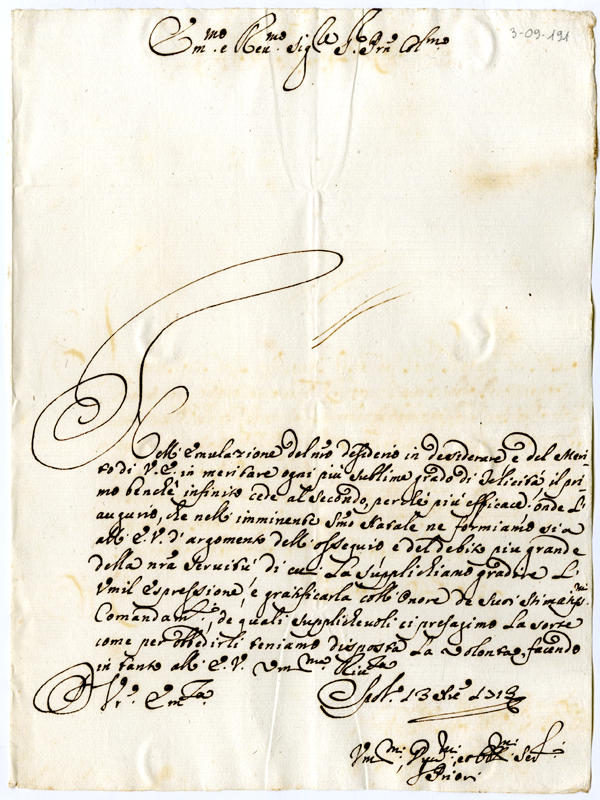 Em.mo e Reu.mo Sig.re P.ron Col.mo
3-09-191
Nell' emulazione del nro desiderio in desiderare e del Meri-
to di V.E. in meritare ogni più sublime grado di felicità il pri-
mo benchè infinito cede al secondo, perchè più efficace: onde L'
augurio, che nell' imminente S.mo Natale ne formiamo sia
all' E.V. d'argomento dell' ossequio e del debito piu grande
della nra seruitù di cui La supplichiamo gradire L'
Vmil espressione, e gratificarla coll' Onore de suoi stimatis.mi
Comandam.ti, de quali supplicheuoli ci presagimo La sorte
come per obbedirli teniamo disposta La Volontà, facendo
in tanto all' E.V. Vm.ma Riu.za
Di V.ra Em.za
Spol.o 13 Xre 1712
Vm.mi, Deu.mi et obb.mi Ser.i
Priori